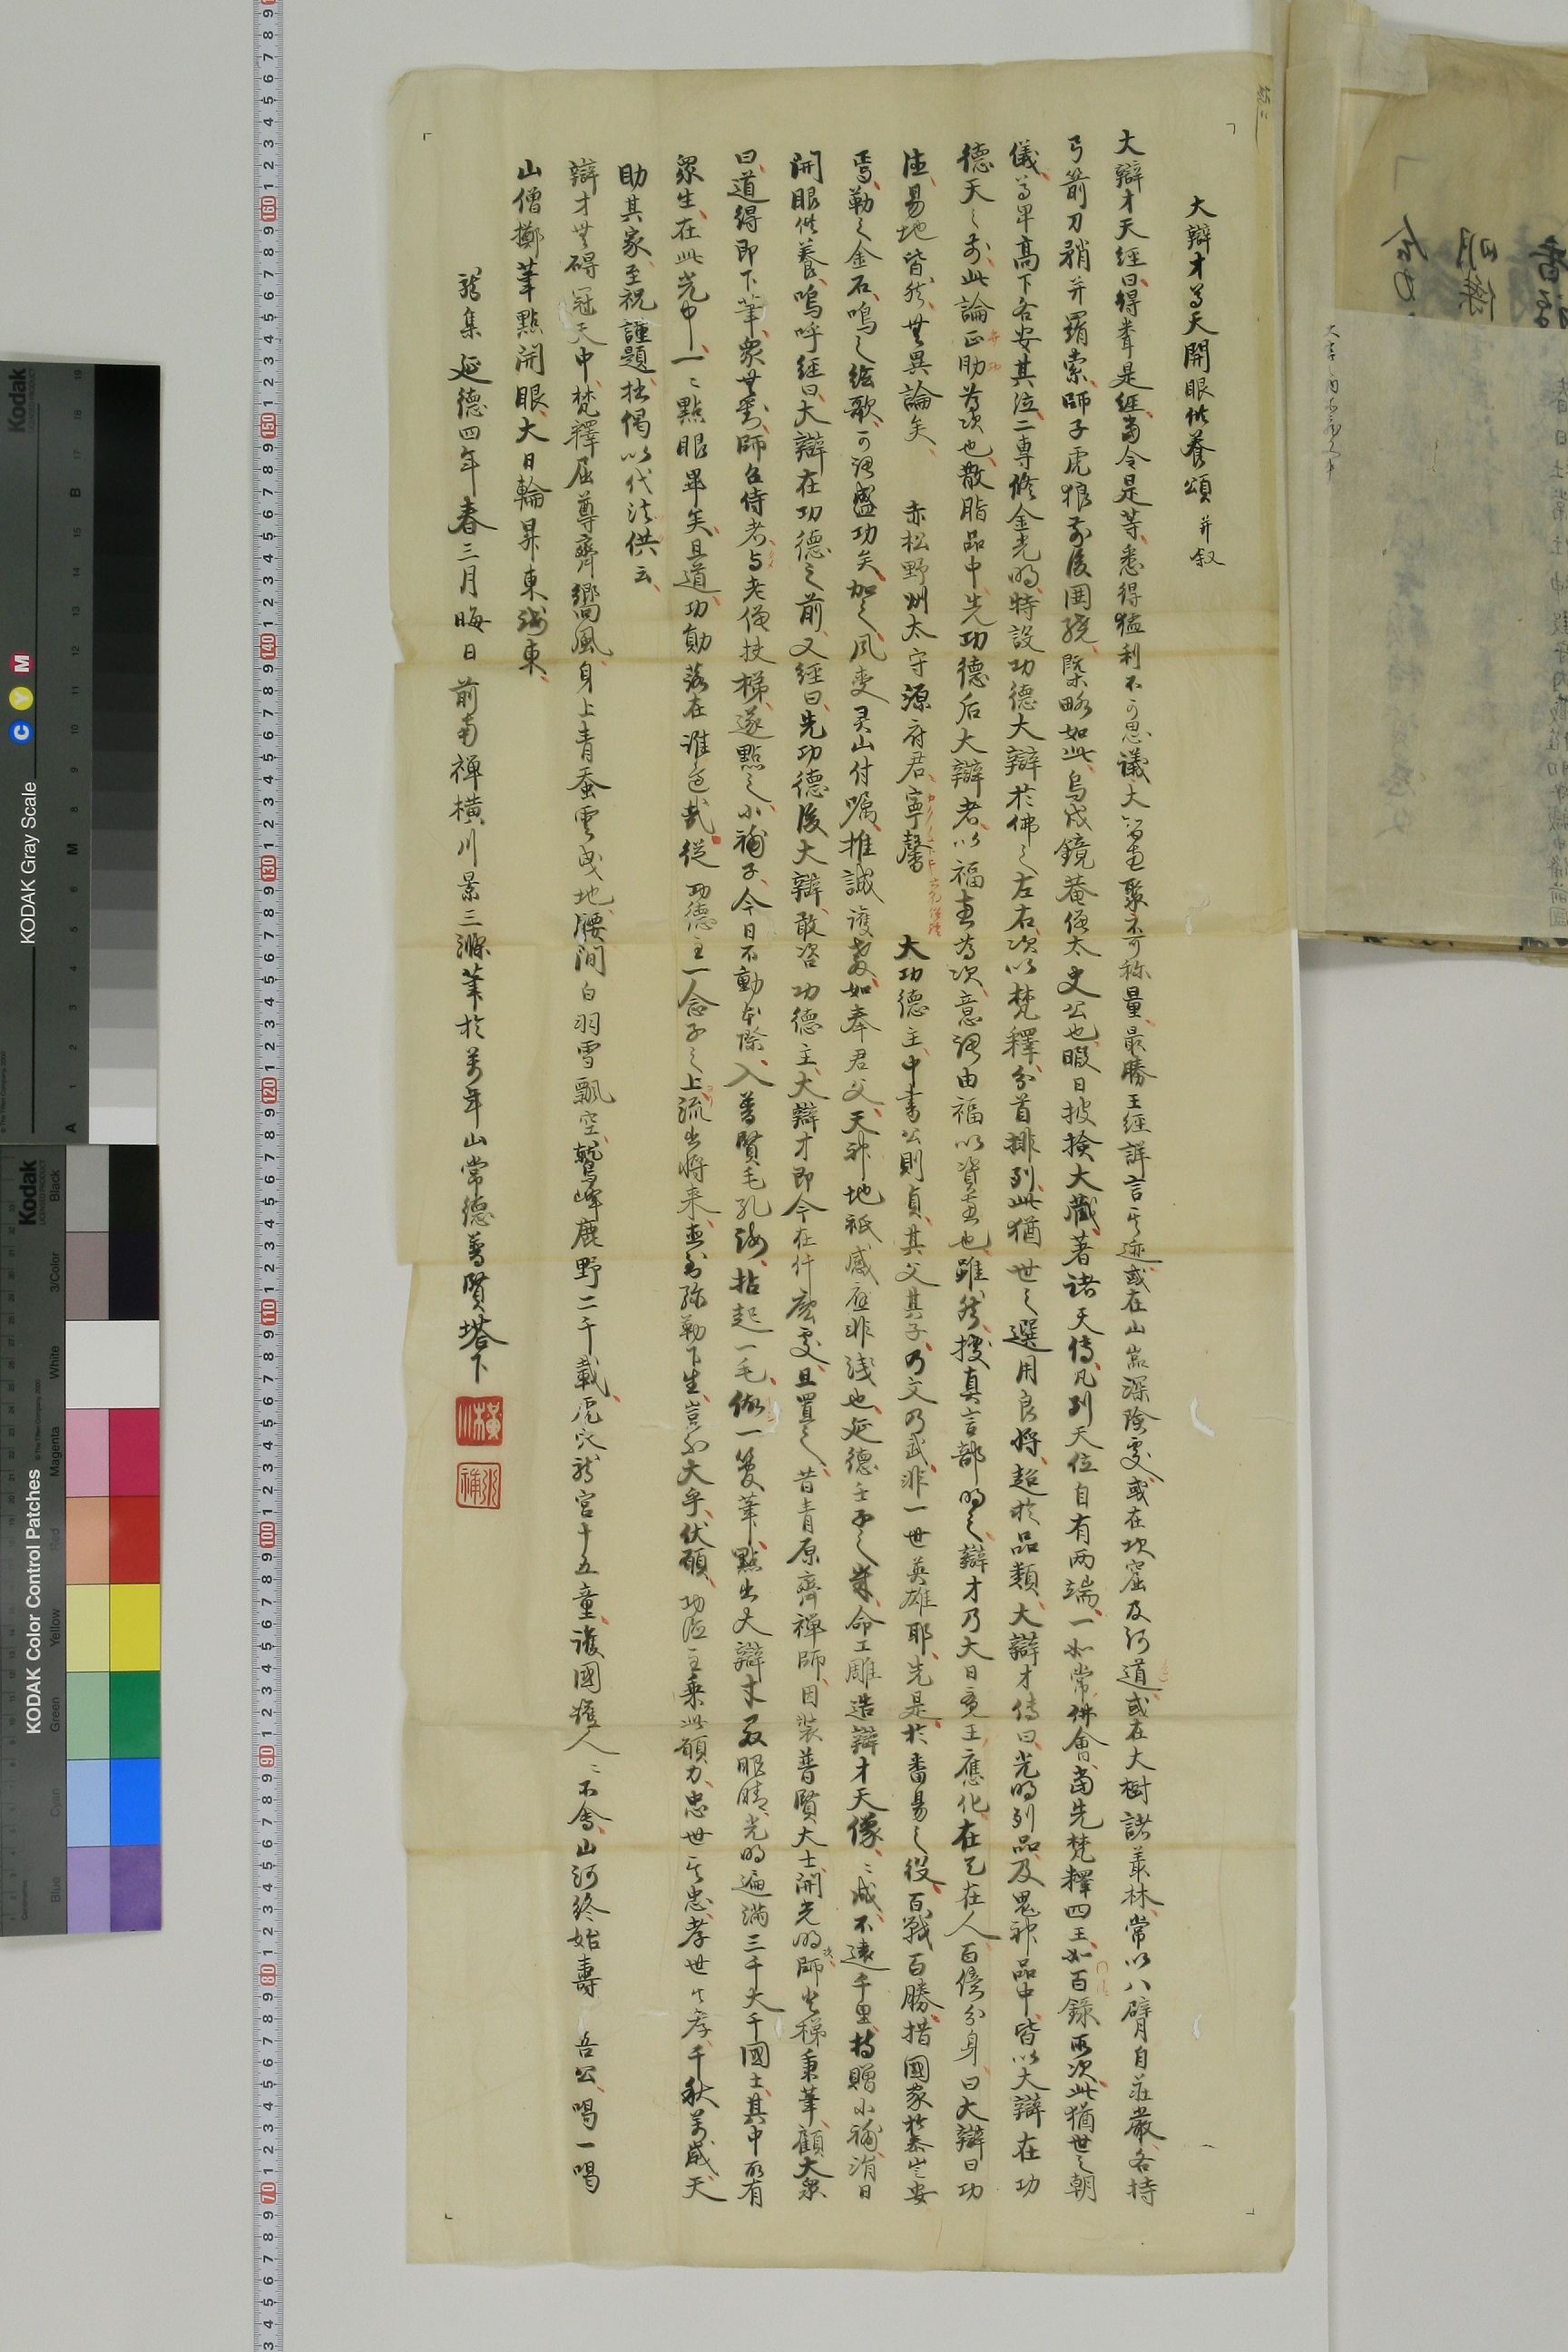 大辯才尊天開眼供養頌 并叙
大辯才天經曰得聞是經當令是等悉得猛利不可思議大智惠聚不可称量最勝王經詳言其迹或在山嵓深險處或在坎窟及河邊或在大樹諸叢林常以八臂自莊嚴各持
弓箭刀矟斧羂索師子虎狼前後囲繞槩略如此烏戍鏡菴侄太史公也暇日披撿大藏著諸天傳凡列天位自有两端一如常佛會當先梵釋四王如百錄所次此猶世之朝
儀尊卑高下各安其位二専修金光明特設功德大辯於佛之左右次以梵釋分首排列此猶世之選用良将超於品類大辯才傳曰光明列品及鬼神品中皆以大辯在功
德天之前此論正助為次也散脂品中先功德后大辯者以福惠為次意謂由福以資惠也雖然援真言部明之辯才乃大日竟王應化在已在人百億分身曰大辯曰功
德易地皆然無異論矣 赤松野州太守源府君寧馨 大功德主中書公則貞其父其子乃文乃武非一世英雄耶先是於番易之役百戰百勝措國家於泰山安
焉勒之金石鳴之絃歌可謂盛功矣加之風変灵山付嘱推誠護教如奉君父天神地祇感應非淺也延德壬子之歲命工雕造辯才天像ミ成不遠千里持贈小補涓日
開眼供養嗚呼經曰大辯在功德之前又經曰先功德後大辯敢咨功德主大辯才即今在什麼處且置之昔青原齊禪師因裝普賢大士開光明師登梯秉筆顧大衆
曰道得即下筆衆無對師召侍者与老僧扶梯遂點之小補子今日不動本際入普賢毛孔海拈起一毛做一管筆點出大辯才天眼睛光明遍滿三千大千國土其中所有
衆生在此光中一ミ點眼畢矣且道功勛落在誰邉哉從 功德主一念子之上流出将来直到弥勒下生豈不大乎伏願 功德主乗此願力忠世其忠孝世其孝千秋萬歲天
助其家至祝謹題拙偈以代法供云
辯才無碍冠天中梵釋屈尊齊嚮風身上青蚕雲曳地腰間白羽雪飄空鷲峰鹿野二千載虎穴龍宮十五童護國護人ミ不會山河終始壽 吾公喝一喝
山僧擲筆點開眼大日輪昇東海東
龍集延德四年春三月晦日前南禪橫川景三滌筆於萬年山常德普賢塔下
橫川
小補